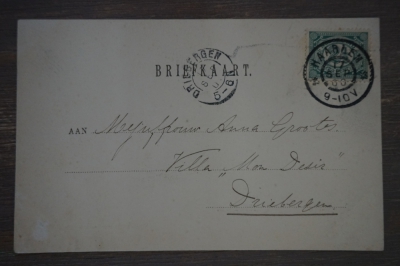 BRIEFKAART.
DRIEBERGEN
HAARLEM
17
SEP
9-10V
AAN Mejuffrouw Anna Grootes.
Villa „Mon Desir"
Driebergen.